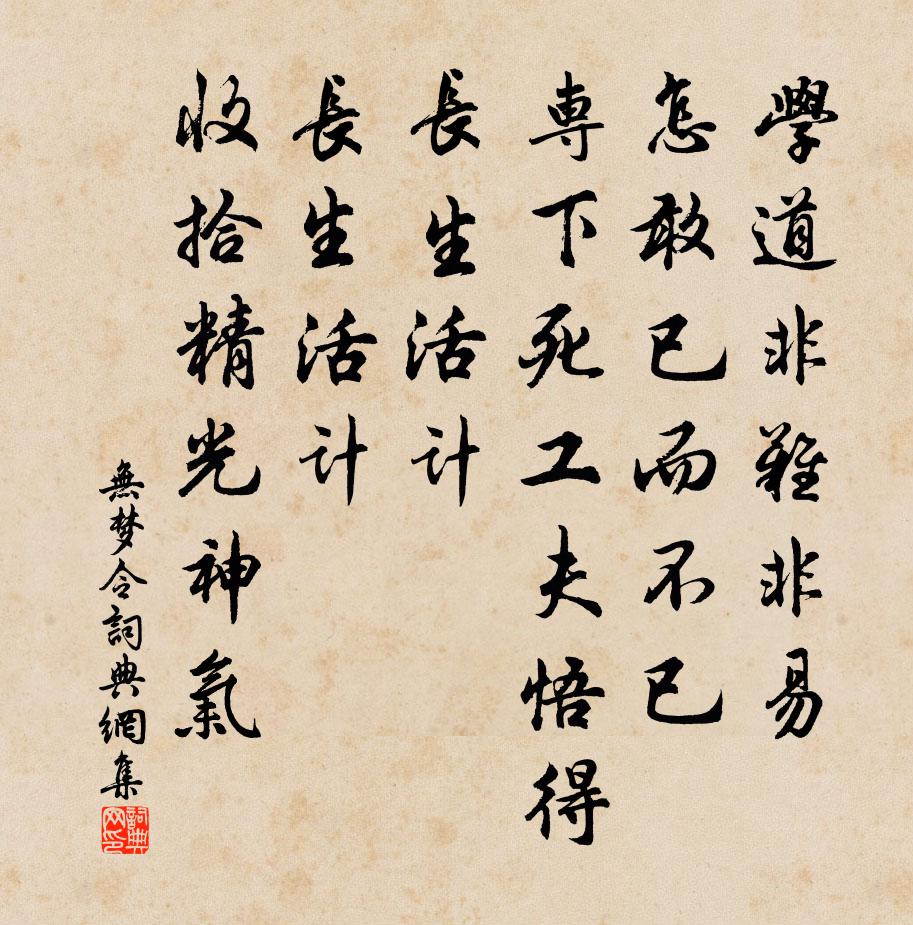 學道非難非易
怎敢已而不已
專下死工夫悟得
長生活计
長生活计
收拾精光神氣
無梦令詞典網集
詞典网印